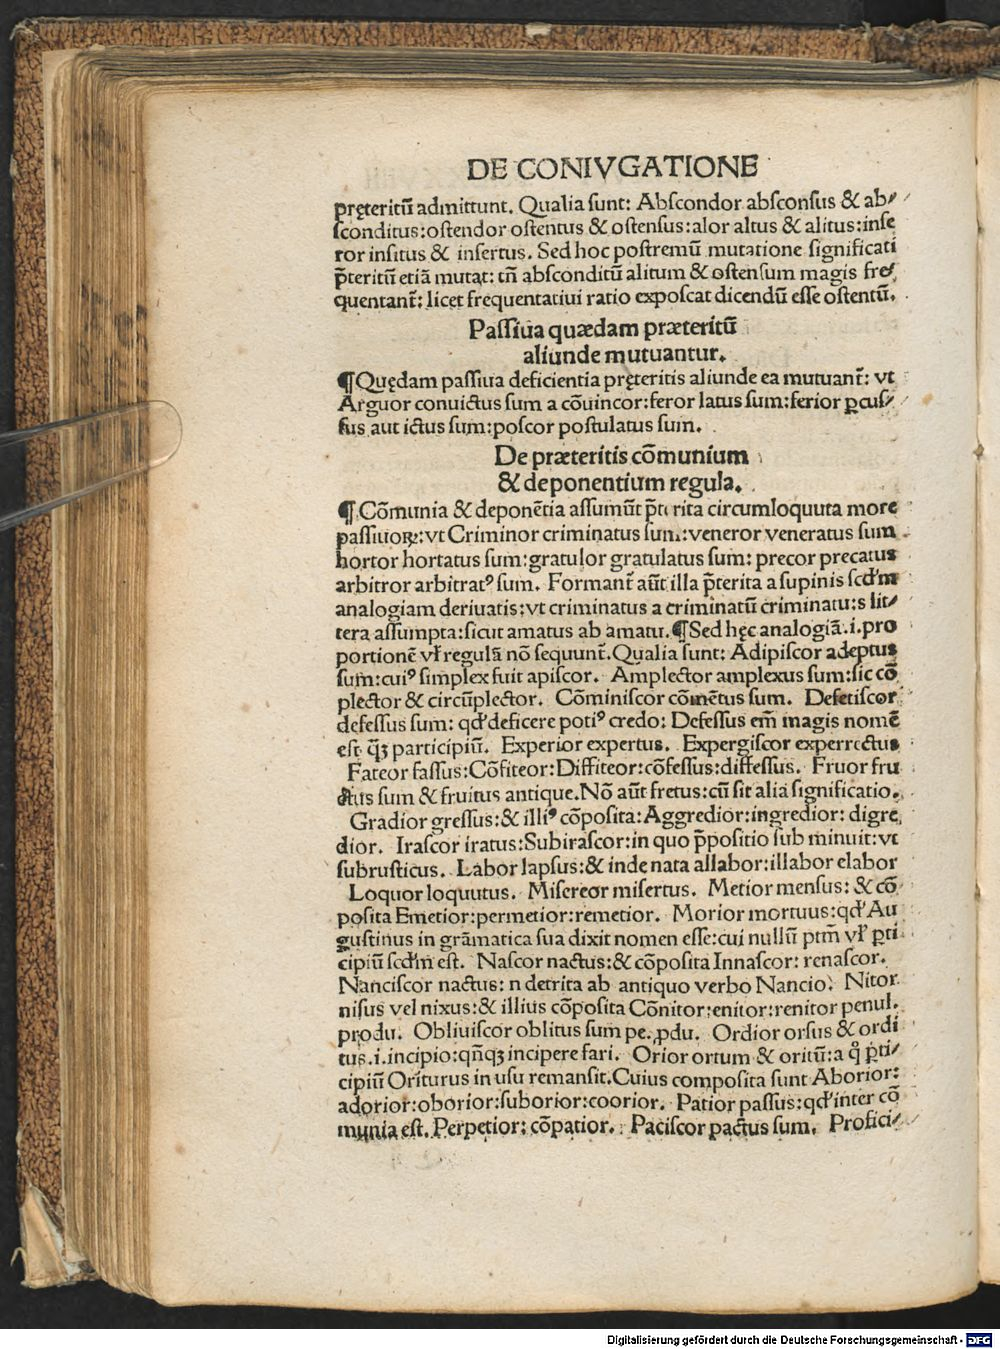 DE CONIVGATIONE
pręteritũ admittunt. Qualia sunt: Abscondor absconsus & ab⸗
sconditus: ostendor ostentus & ostensus: alor altus & alitus: inse
ror insitus & insertus. Sed hoc postremũ mutatione significati
p̃teritũ etiã mutat: tñ absconditũ alitum & ostensum magis fre⸗
quentant̃: licet frequentatiui ratio exposcat dicendũ esse ostentũ.
Passiua quædam præteritũ
aliunde mutuantur.
¶ Quędam passiua deficientia pręteritis aliunde ea mutuant̃: vt
Arguor conuictus sum a cõuincor: feror latus sum: ferior ꝑcus⸗
sus aut ictus sum: poscor postulatus sum.
De præteritis cõmunium
& deponentium regula.
¶ Cõmunia & deponẽtia assumũt p̃terita circumloquuta more
passiuoꝝ: vt Criminor criminatus sum: veneror veneratus sum
hortor hortatus sum: gratulor gratulatus sum: precor precatus
arbitror arbitratꝰ sum. Formant̃ aũt illa p̃terita a supinis scďm
analogiam deriuatis: vt criminatus a criminatũ criminatu: s lit⸗
tera assumpta: sicut amatus ab amatu. ¶ Sed hęc analogiã .i. pro
portionẽ vł regulã nõ sequunt̃. Qualia sunt: Adipiscor adeptus
sum: cuiꝰ simplex fuit apiscor. Amplector amplexus sum: sic cõ
plector & circũplector. Cõminiscor cõmẽtus sum. Defetiscor
defessus sum: qď deficere potiꝰ credo: Defessus em̃ magis nomẽ
est q̃ꝫ participiũ. Experior expertus. Expergiscor experrectus
Fateor fassus: Cõfiteor: Diffiteor: cõfessus: diffessus. Fruor fru
ctus sum & fruitus antique. Nõ aũt fretus: cũ sit alia significatio.
Gradior gressus: & illiꝰ cõposita: Aggredior: ingredior: digre⸗
dior. Irascor iratus: Subirascor: in quo p̃positio sub minuit: vt
subrusticus. Labor lapsus: & inde nata allabor: illabor elabor
Loquor loquutus. Misereor misertus. Metior mensus: & cõ
posita Emetior: permetior: remetior. Morior mortuus: qď Au
gustinus in grãmatica sua dixit nomen esse: cui nullũ ptm̃ vł ꝑti
cipiũ scďm est. Nascor nactus: & cõposita Innascor: renascor.
Nanciscor nactus: n detrita ab antiquo verbo Nancio. Nitor
nisus vel nixus: & illius cõposita Cõnitor: enitor: renitor penul.
produ. Obliuiscor oblitus sum pe. ꝓdu. Ordior orsus & ordi
tus .i. incipio: qñqꝫ incipere fari. Orior ortum & oritũ: a q̊ ꝑti⸗
cipiũ Oriturus in usu remansit. Cuius composita sunt Aborior:
adorior: oborior: suborior: coorior. Patior passus: qď inter cõ
munia est. Perpetior: cõpatior. Paciscor pactus sum. Profici⸗
Digitalisierung gefördert durch die Deutsche Forschungsgemeinschaft - DFG